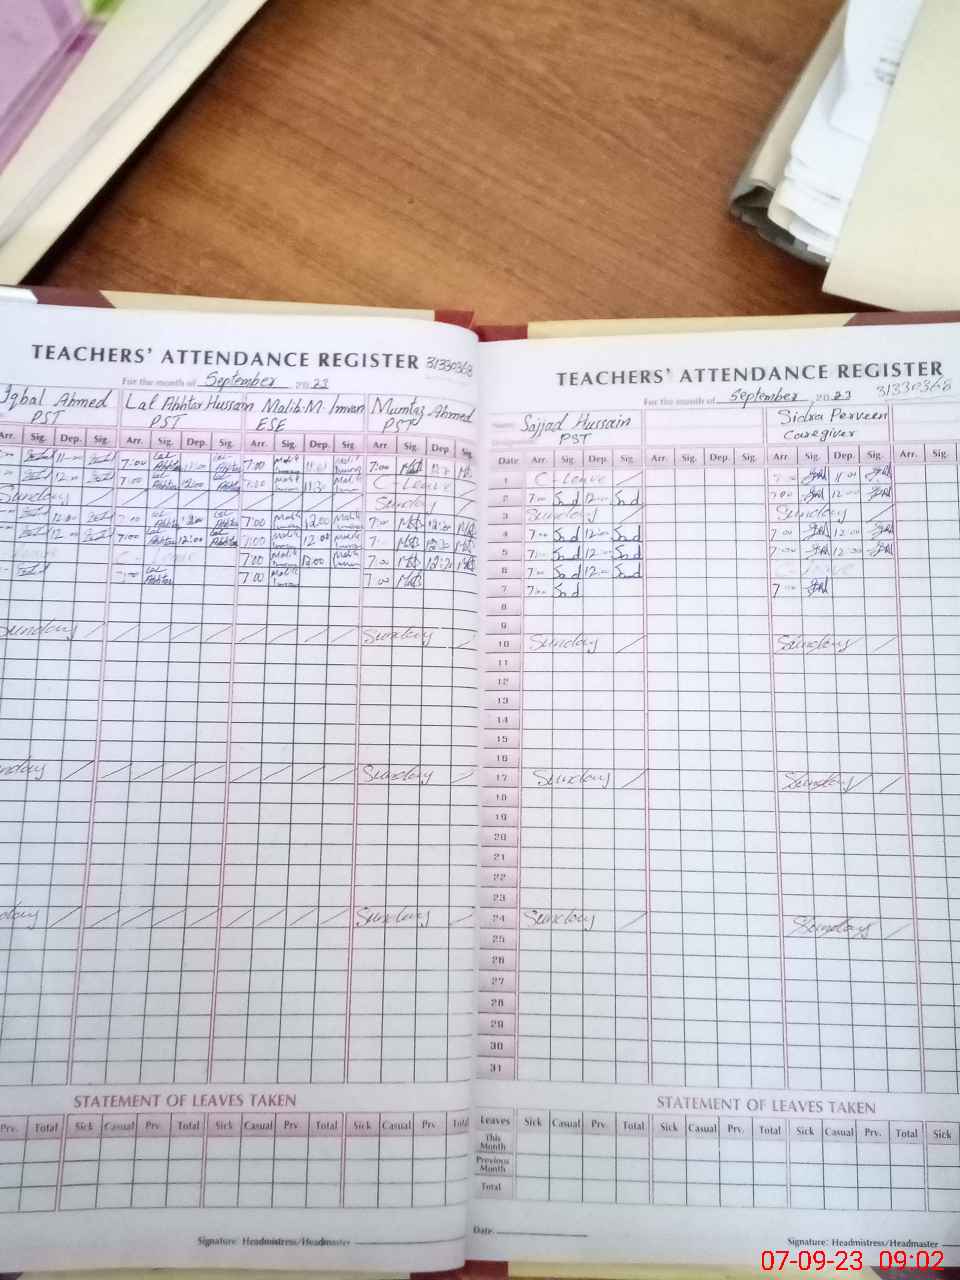 TEACHERS' ATTENDANCE REGISTER 31330368
For the month of September 2023
Iqbal Ahmed Lal Akhtar Hussain Malik M. Imran Mumtaz Ahmed
PST PST ESE PST
Arr. Sig. Dep. Sig. Arr. Sig. Dep. Sig. Arr. Sig. Dep. Sig. Arr. Sig. Dep Sig.
11:00 7:00 Lal Akhtar 11:00 Lal Akhtar 7:00 Malik Imran 11:00 Malik Imran 7:00
12:00 7:00 Lal Akhtar 12:00 Lal Akhtar 7:00 Malik Imran 11:30 Malik Imran C-Leave
Sunday Sunday
12:00 7:00 Lal Akhtar 12:00 Lal Akhtar 7:00 Malik Imran 12:00 Malik Imran 7:00
12:00 7:00 Lal Akhtar 12:00 Lal Akhtar 7:00 Malik Imran 12:00 Malik Imran
C-Leave 7:00 Malik Imran 12:00 Malik Imran 7:00
Lal Akhtar 7:00 Malik Imran 7:00
Sunday Sunday
Sunday Sunday
Sunday Sunday
STATEMENT OF LEAVES TAKEN
Prv. Total Sick Casual Prv. Total Sick Casual Prv Total Sick Casual Prv. Total
Signature: Headmistress/Headmaster
TEACHERS' ATTENDANCE REGISTER
For the month of September, 2023 31330368
Name: Sajjad Hussain Sidra Perveen
PST Caregiver
Date Arr. Sig. Dep. Sig. Arr. Sig. Dep. Sig. Arr. Sig. Dep. Sig. Arr. Sig.
1 C-Leave 7:00 11:00
2 7:00 Sad 12:00 Sad 7:00 12:00
3 Sunday Sunday
4 7:00 Sad 12:00 Sad 7:00 12:00
5 7:00 Sad 12:00 Sad 7:00 12:00
6 7:00 Sad 12:00 Sad C-Leave
7 7:00 Sad 7:00
8
9
10 Sunday Sunday
11
12
13
14
15
16
17 Sunday Sunday
18
19
20
21
22
23
24 Sunday Sunday
25
26
27
28
29
30
31
STATEMENT OF LEAVES TAKEN
Leaves Sick Casual Prv. Total Sick Casual Prv. Total Sick Casual Prv. Total Sick
This Month
Previous Month
Total
Date:
Signature: Headmistress/Headmaster
07-09-23 09:02